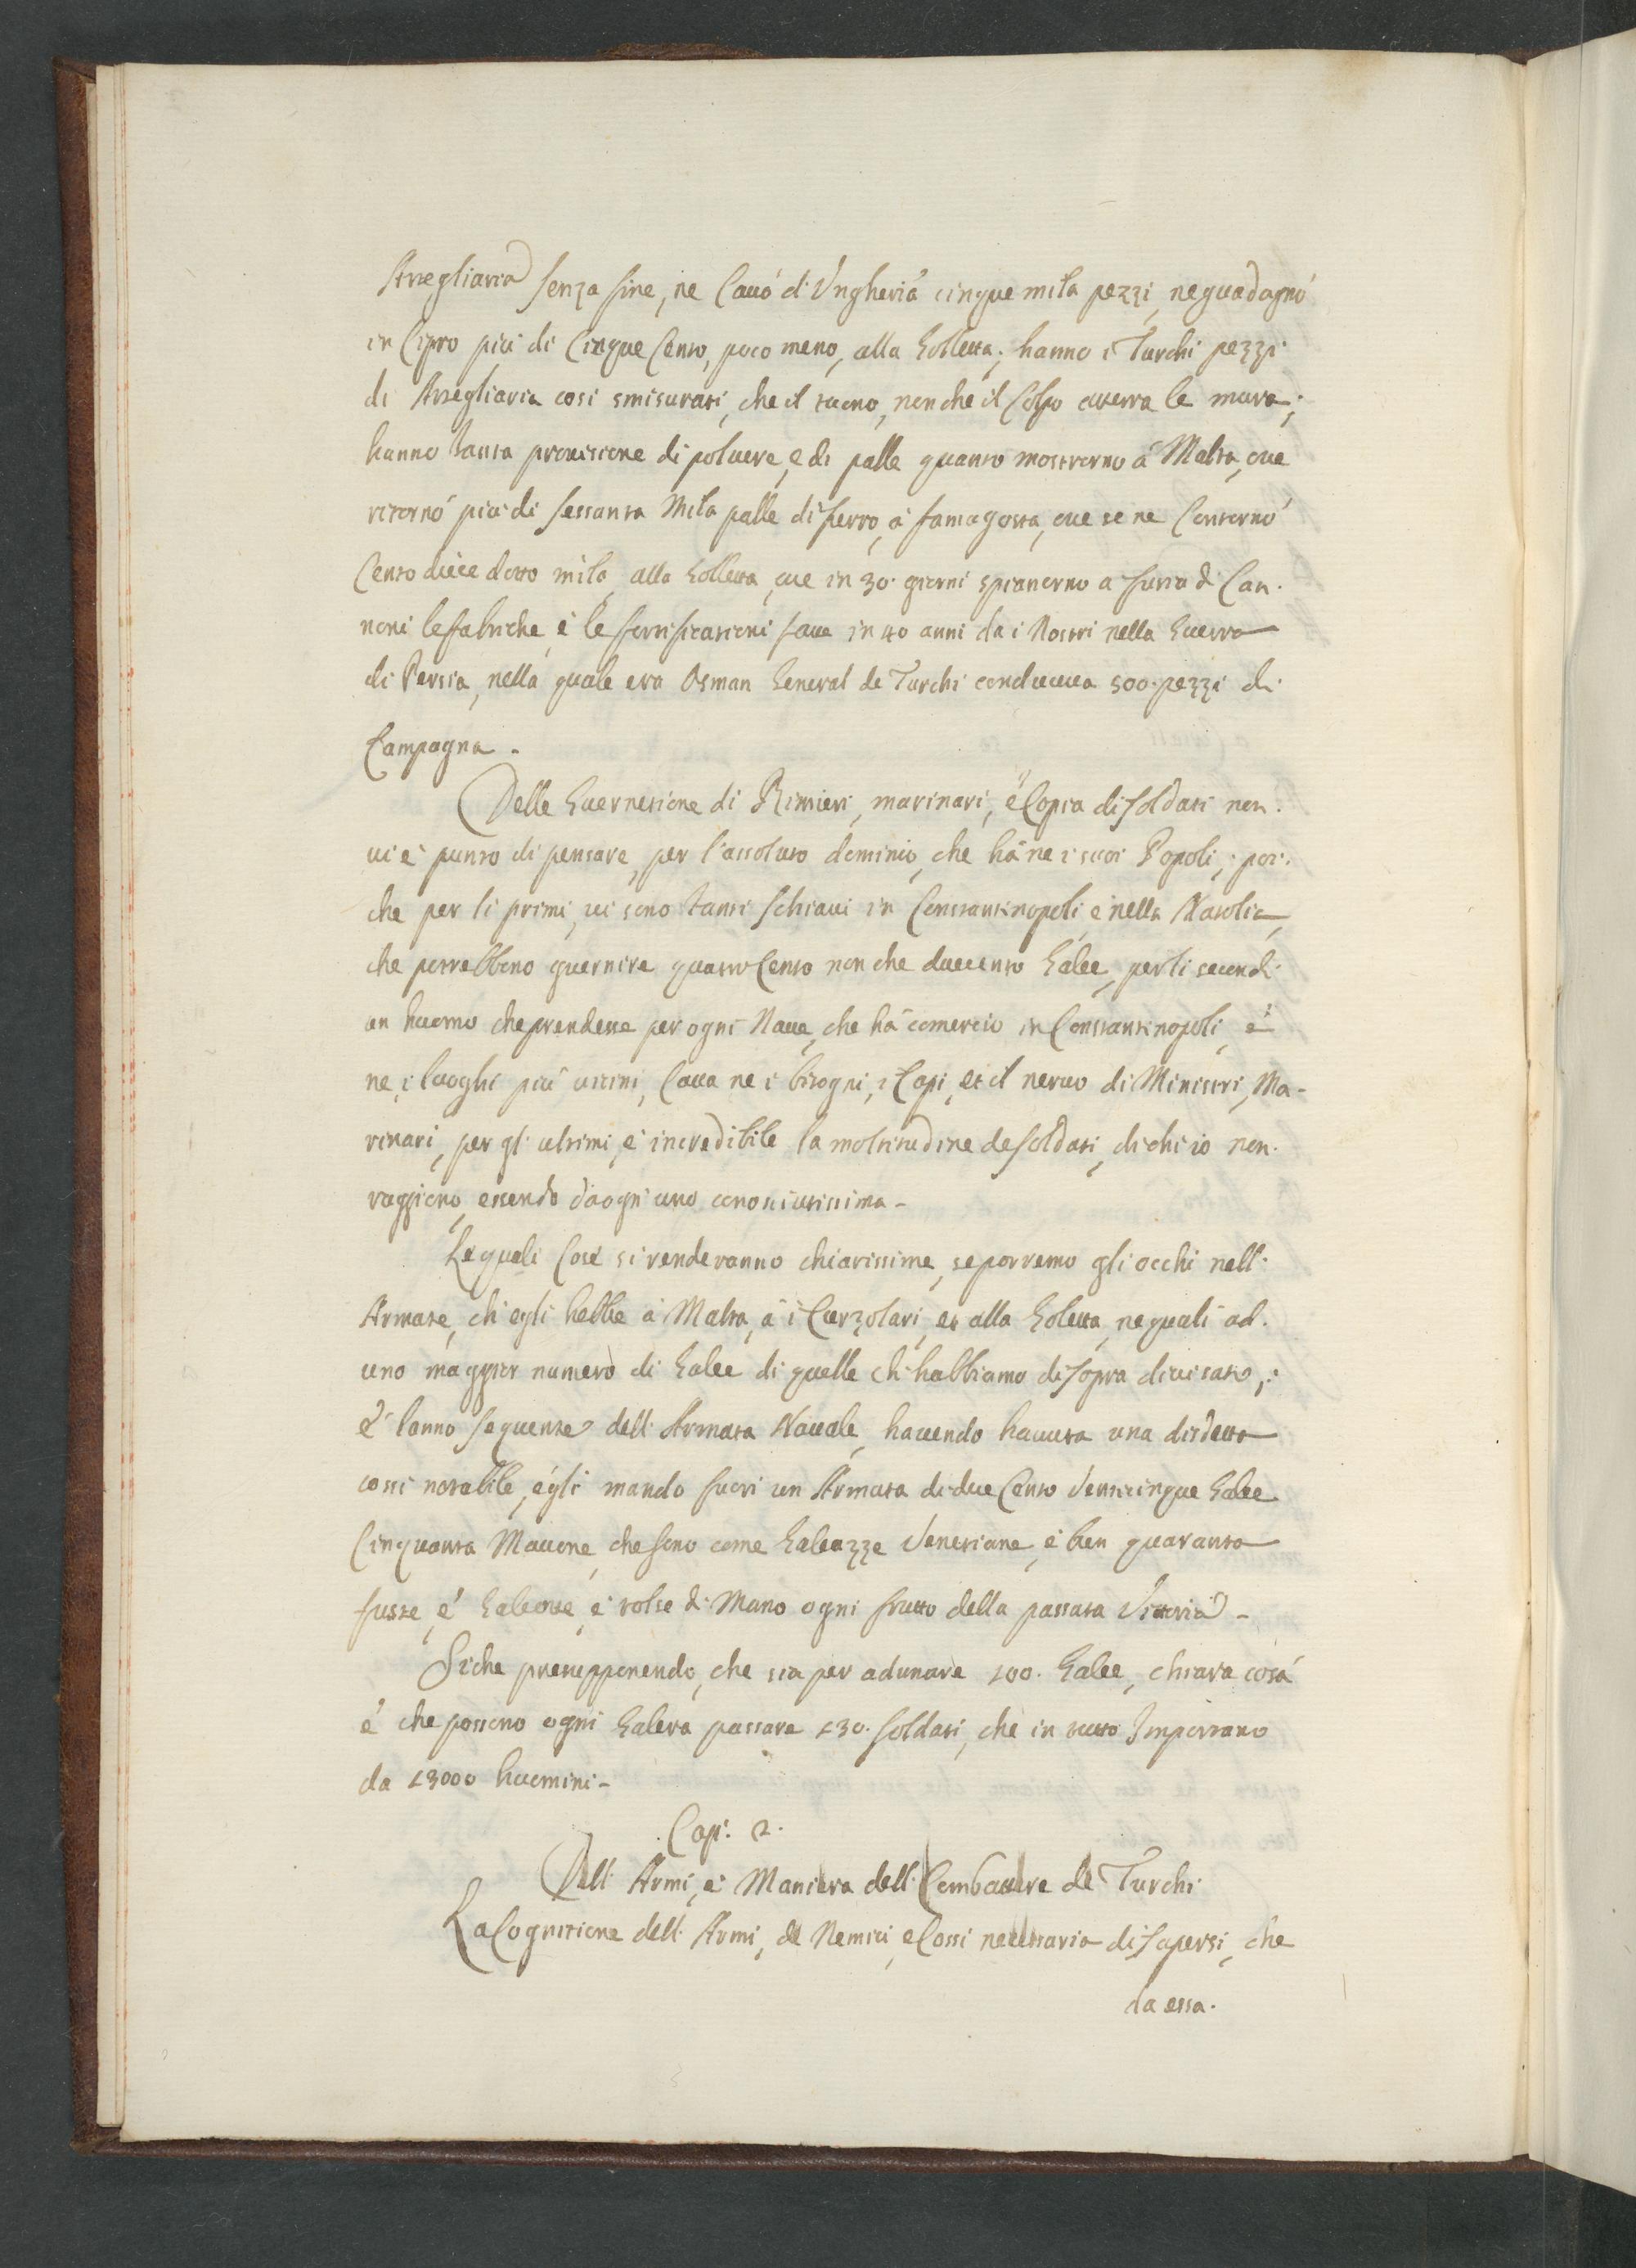 Artegliaria senza fine, ne Cauó di Vngheria cinque mila pezzi, ne guadagnó
in Cipro piu di Cinque Cento, poco meno, alla Golletta; hanno i Turchi pezzi
di Artegliaria cosi smisurati, che il tuono, non che il Colpo atterra le mura;
hanno tanta prouisione di poluere, e di palle quanto mostrorno á Malta, oue
ritornó piu di sessanta Mila palle di ferro, á famagosta, oue se ne Contornó
Cento diece dotto mila, alla Golletta, oue in 30. giorni spianorno a furia di Can.
noni le fabriche, é le fortificationi fatte in 40 anni da i Nostri nella Guerra
di Perssia, nella quale era Osman General de Turchi conduceua 500. pezzi di
Campagna.
Delle Guernitione di Rimieri, marinari, é Copia di soldati non.
ui é punto di pensare, per l'assoluto dominio, che há ne i suoi Popoli; poi.
che per li primi, ui sono tanti schiaui in Constantinopoli, e nella Natolia,
che potrebbono guernire quattro Cento non che duecento Galee, per li secondi
un huomo che prendesse per ogni Naue, che há comercio in Constantinopoli, é
ne i luoghi piu uicini, Caua ne i bisogni, i Capi, et il neruo di Ministri, Ma-
rinari, per gl' ultimi, é incredibile la moltitudine de soldati, di chi io non.
raggiono, essendo da ogni uno conosciutissima-
Le quali Cose si renderanno chiarissime, se porremo gli occhi nell'
Armate, ch' egli hebbe á Malta, á i Curzolari, et alla Goletta, ne quali ad.
uno maggior numero di Galee di quelle ch' habbiamo di sopra diuisato;
é lanno sequente dell' Armata Nauale, hauendo hauuta una disdetta
cossi notabile, egli mando fuori un Armata di due Cento Venticinque Galee
Cinquanta Maone, che sono come Galeazze Venetiane, é ben quaranta
fuste, é Galeotte, é tolse di Mano ogni frutto della passata Vittoria-
Siche presupponendo, che sia per adunare 100. Galee, chiara cosa
é che possono ogni Galera passare 130. soldati, che in tutto Importano
da 13000 huomini-
Cap: 2.
Dell' Armi, é Maniera dell' Combattere de Turchi
La Cognitione dell' Armi, de Nemici, e Cossi necessaria di sapersi, che
da essa.